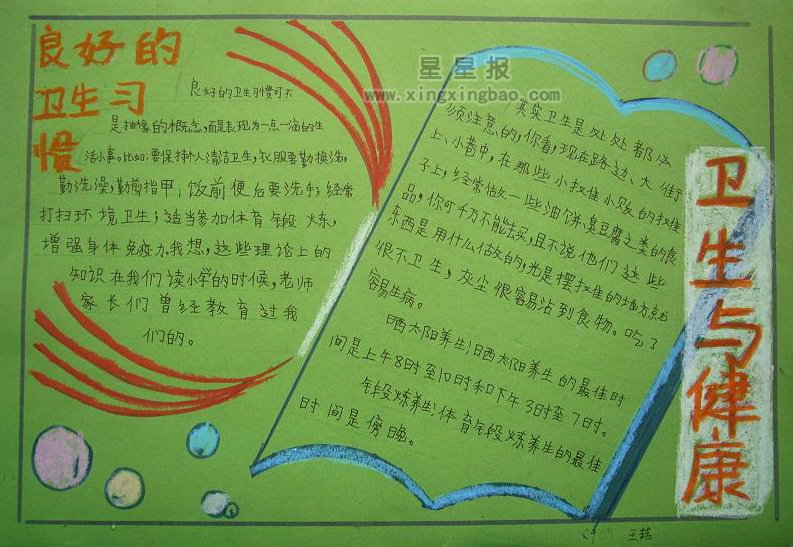 良好的
卫生习
惯
良好的卫生习惯可不
是抽像的概念,而是表现为一点一滴的生
活小事。比如:要保持个人清洁卫生,衣服要勤换洗,
勤洗澡,勤剪指甲;饭前便后要洗手;经常
打扫环境卫生;适当参加体育锻炼,
增强身体免疫力。我想,这些理论上的
知识在我们读小学的时候,老师
家长们曾经教育过我
们的。
星星报
www.xingxingbao.com
其实卫生是处处都必
须注意的,你看,现在路边、大街
上、小巷中,在那些小摊小贩的摊
子上,经常做一些油饼、臭豆腐之类的食
品,你可千万不能去买,且不说他们这些
东西是用什么做的,光是摆摊的地方就
很不卫生,灰尘很容易沾到食物。吃了
容易生病。
晒太阳养生:晒太阳养生的最佳时
间是上午8时至10时和下午3时至7时。
锻炼养生:体育锻炼养生的最佳
时间是傍晚。
卫生与健康
王